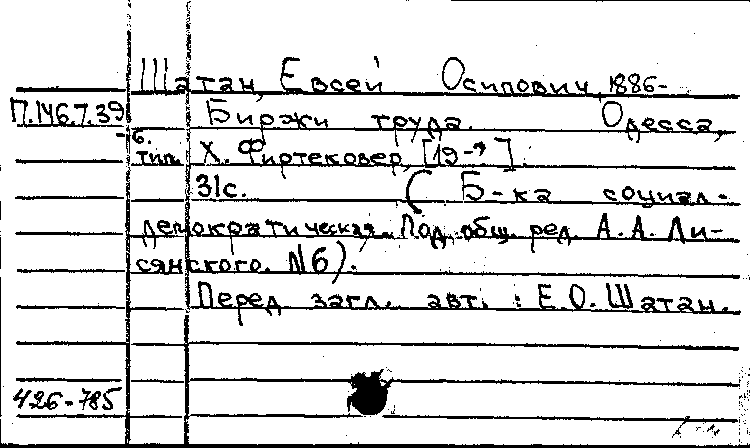 Шатан, Евсей Осипович, 1886-
П.146.7.39 Биржи труда. Одесса,
б. тип. Х. Фиртековер, [19-?].
31с. (Б-ка социал-
демократическая. Под общ. ред. А.А. Ли-
сянского. N6).
Перед загл. авт.: Е.О. Шатан.
426-785